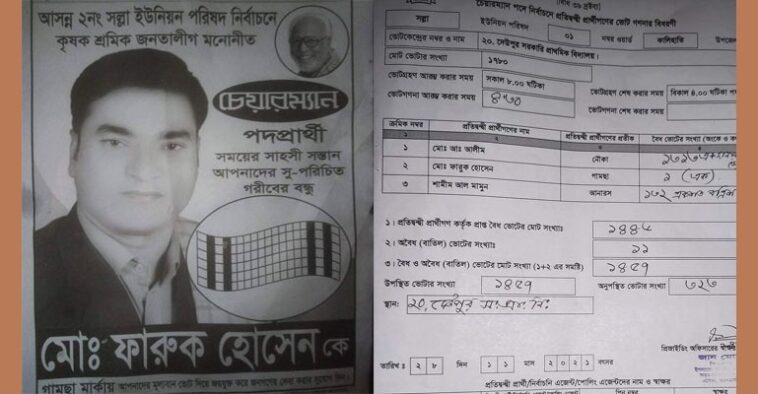 আসন্ন ২নং সল্লা ইউনিয়ন পরিষদ নির্বাচনে
কৃষক শ্রমিক জনতালীগ মনোনীত
চেয়ারম্যান
পদপ্রার্থী
সময়ের সাহসী সন্তান
আপনাদের সু-পরিচিত
গরীবের বন্ধু
মোঃ ফারুক হোসেন কে
গামছা মার্কায় আপনাদের মূল্যবান ভোট দিয়ে জয়যুক্ত করে জনগণের সেবা করার সুযোগ দিন।
চেয়ারম্যান পদে নির্বাচনে প্রতিদ্বন্দ্বী প্রার্থীগণের ভোট গণনার বিবরণী
সল্লা ইউনিয়ন পরিষদ ০১ নম্বর ওয়ার্ড কালিহাতি
ভোটকেন্দ্রের নম্বর ও নাম ২০. দেউপুর সরকারি প্রাথমিক বিদ্যালয়।
মোট ভোটার সংখ্যা ১৭৮০
ভোটগ্রহণ আরম্ভ করার সময় সকাল ৮.০০ ঘটিকা ভোটগ্রহণ শেষ করার সময় বিকাল ৪.০০ ঘটিকা
ভোটগণনা আরম্ভ করার সময় ভোটগণনা শেষ করার সময়
ক্রমিক নম্বর প্রতিদ্বন্দ্বী প্রার্থীগণের নাম প্রতিদ্বন্দ্বী প্রার্থীগণের প্রতীক বৈধ ভোটের সংখ্যা
১ ২ ৩ ৪
১ মোঃ আঃ আলীম নৌকা
২ মোঃ ফারুক হোসেন গামছা ১ (এক)
৩ শামীম আল মামুন আনারস ১৩২
১। প্রতিদ্বন্দ্বী প্রার্থীগণ কর্তৃক প্রাপ্ত বৈধ ভোটের মোট সংখ্যাঃ
২। অবৈধ (বাতিল) ভোটের সংখ্যাঃ ১১
৩। বৈধ ও অবৈধ (বাতিল) ভোটের মোট সংখ্যা (১+২ এর সমষ্টি)
উপস্থিত ভোটার সংখ্যা অনুপস্থিত ভোটার সংখ্যা
স্থান:
প্রিজাইডিং অফিসারের স্বাক্ষর
তারিখঃ ২ ৮ দিন ১ ১ মাস ২ ০ ২ ১ বৎসর
প্রতিদ্বন্দ্বী প্রার্থী/নির্বাচনি এজেন্ট/পোলিং এজেন্টদের নাম ও স্বাক্ষর